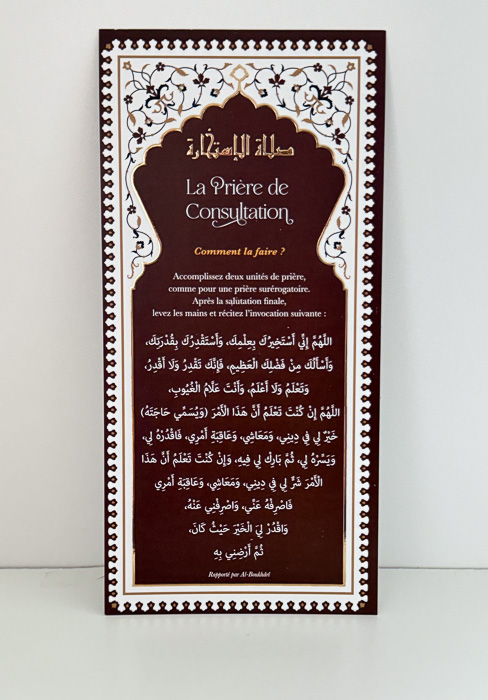 صلاة الإستخارة
La Prière de
Consultation
Comment la faire ?
Accomplissez deux unités de prière,
comme pour une prière surérogatoire.
Après la salutation finale,
levez les mains et récitez l'invocation suivante :
اللَّهُمَّ إِنِّي أَسْتَخِيرُكَ بِعِلْمِكَ، وَأَسْتَقْدِرُكَ بِقُدْرَتِكَ،
وَأَسْأَلُكَ مِنْ فَضْلِكَ الْعَظِيمِ، فَإِنَّكَ تَقْدِرُ وَلَا أَقْدِرُ،
وَتَعْلَمُ وَلَا أَعْلَمُ، وَأَنْتَ عَلَّامُ الْغُيُوبِ،
اللَّهُمَّ إِنْ كُنْتَ تَعْلَمُ أَنَّ هَذَا الْأَمْرَ (وَيُسَمِّي حَاجَتَهُ)
خَيْرٌ لِي فِي دِينِي، وَمَعَاشِي، وَعَاقِبَةِ أَمْرِي، فَاقْدُرْهُ لِي،
وَيَسِّرْهُ لِي، ثُمَّ بَارِكْ لِي فِيهِ، وَإِنْ كُنْتَ تَعْلَمُ أَنَّ هَذَا
الْأَمْرَ شَرٌّ لِي فِي دِينِي، وَمَعَاشِي، وَعَاقِبَةِ أَمْرِي
فَاصْرِفْهُ عَنِّي، وَاصْرِفْنِي عَنْهُ،
وَاقْدُرْ لِيَ الْخَيْرَ حَيْثُ كَانَ،
ثُمَّ أَرْضِنِي بِهِ
Rapporté par Al-Boukhârî